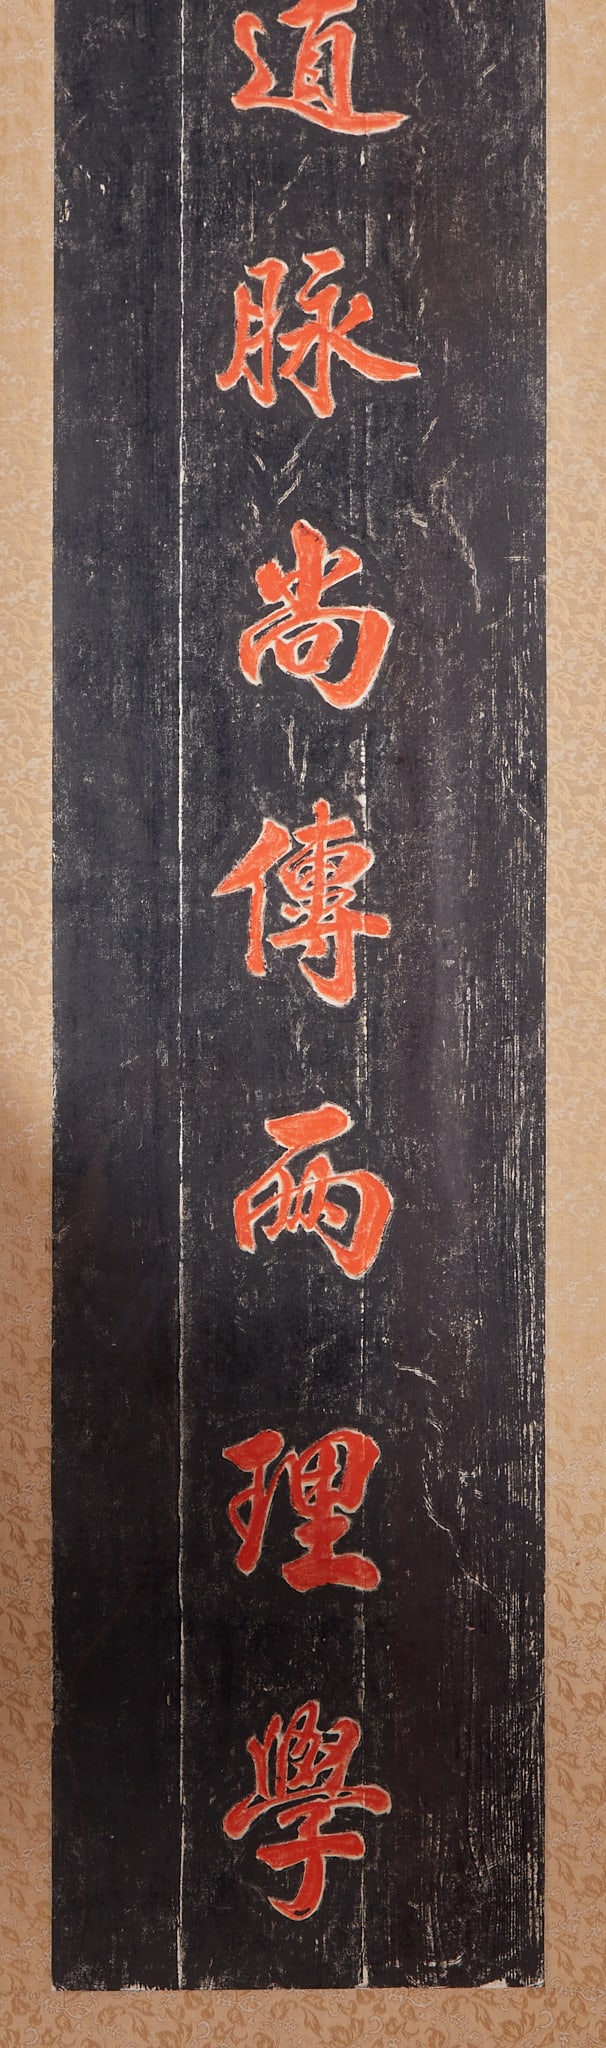 道脉尚傳兩理學